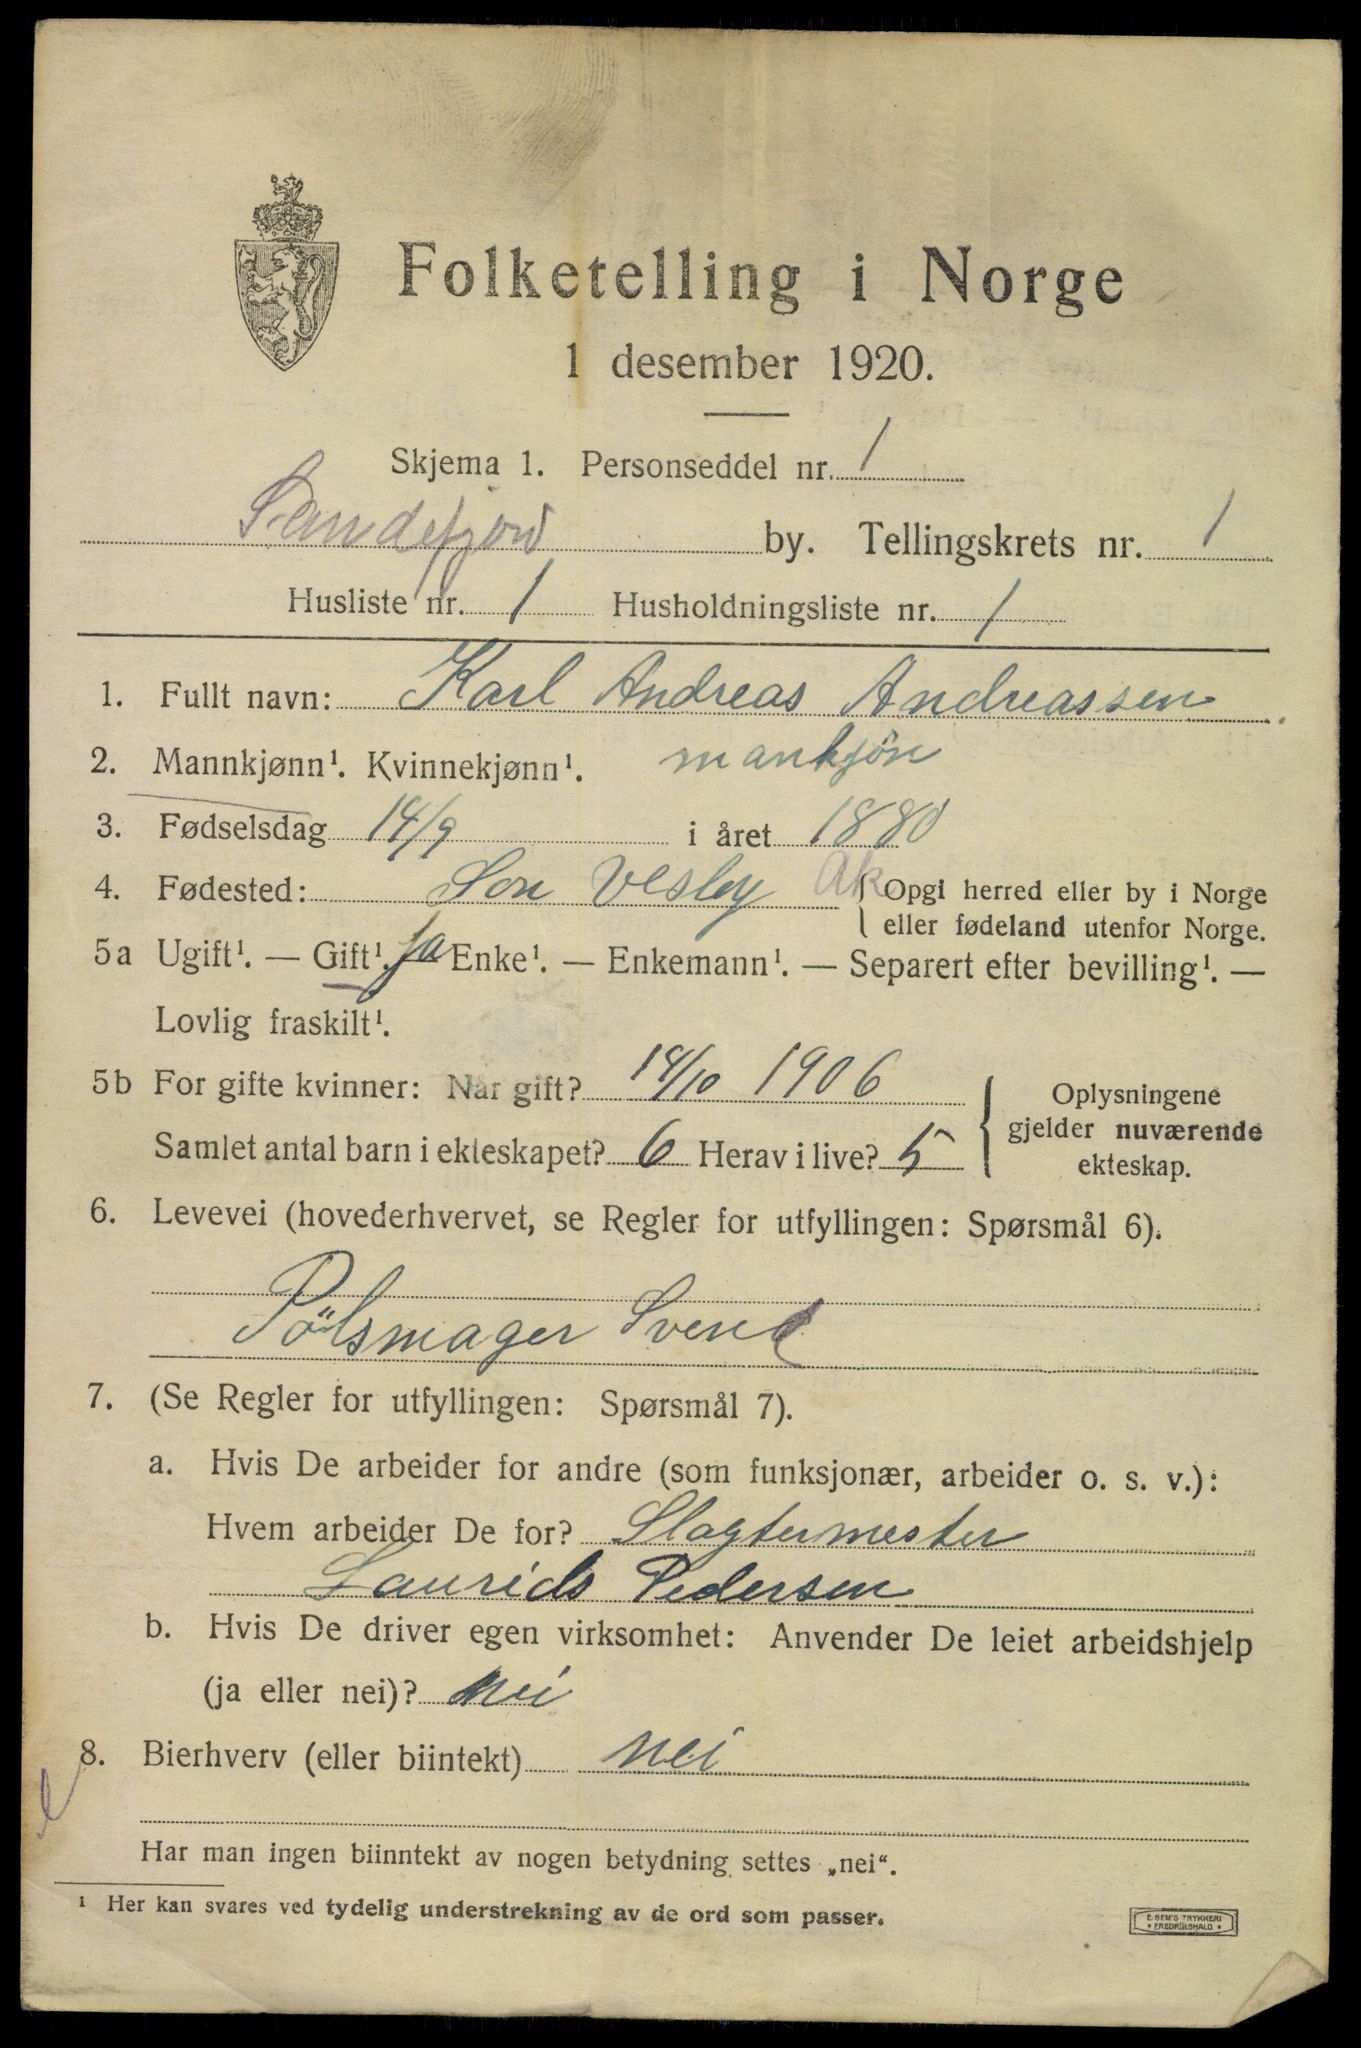 Folketelling i Norge
1 desember 1920.
Skjema 1. Personseddel nr. 1
Sandefjord by. Tellingskrets nr. 1
Husliste nr. 1 Husholdningsliste nr. 1
1. Fullt navn: Karl Andreas Andreassen
2. Mannkjønn¹. Kvinnekjønn¹. mankjön
3. Fødselsdag 14/9 i året 1880
4. Fødested: Son Vesby Ak { Opgi herred eller by i Norge
eller fødeland utenfor Norge.
5a Ugift¹. — Gift¹. ja Enke¹. — Enkemann¹. — Separert efter bevilling¹. —
Lovlig fraskilt¹.
5b For gifte kvinner: Når gift? 14/10 1906
Samlet antal barn i ekteskapet? 6 Herav i live? 5
Oplysningene
gjelder nuværende
ekteskap.
6. Levevei (hovederhvervet, se Regler for utfyllingen: Spørsmål 6).
Pölsmager Svend
7. (Se Regler for utfyllingen: Spørsmål 7).
a. Hvis De arbeider for andre (som funksjonær, arbeider o. s. v.):
Hvem arbeider De for? Slagtermester
Laurids Pedersen
b. Hvis De driver egen virksomhet: Anvender De leiet arbeidshjelp
(ja eller nei)? nei
8. Bierhverv (eller biintekt) nei
Har man ingen biinntekt av nogen betydning settes „nei“.
¹ Her kan svares ved tydelig understrekning av de ord som passer.
E. SEM'S TRYKKERI
FREDRIKSHALD